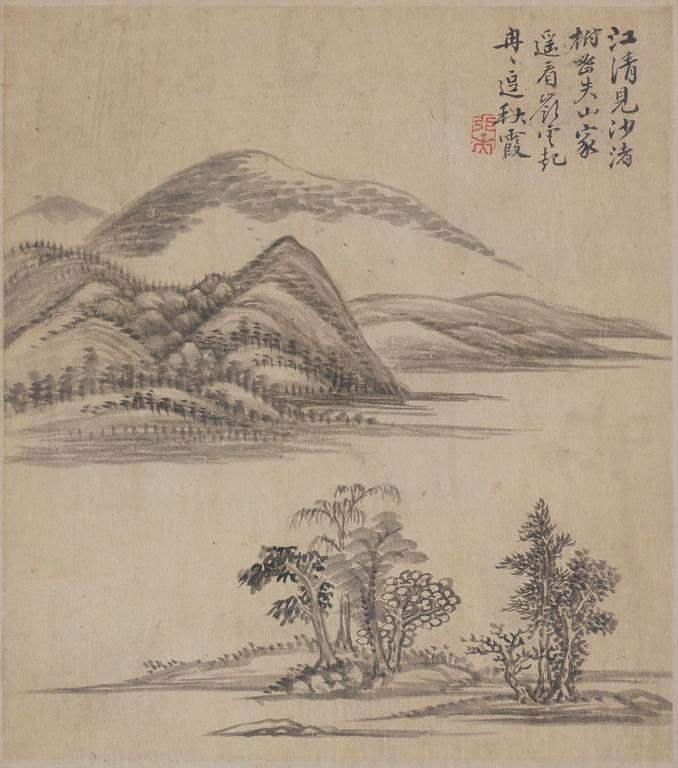 江清見沙渚
樹密失山家
遥看雲起
冉〻逗秋霞